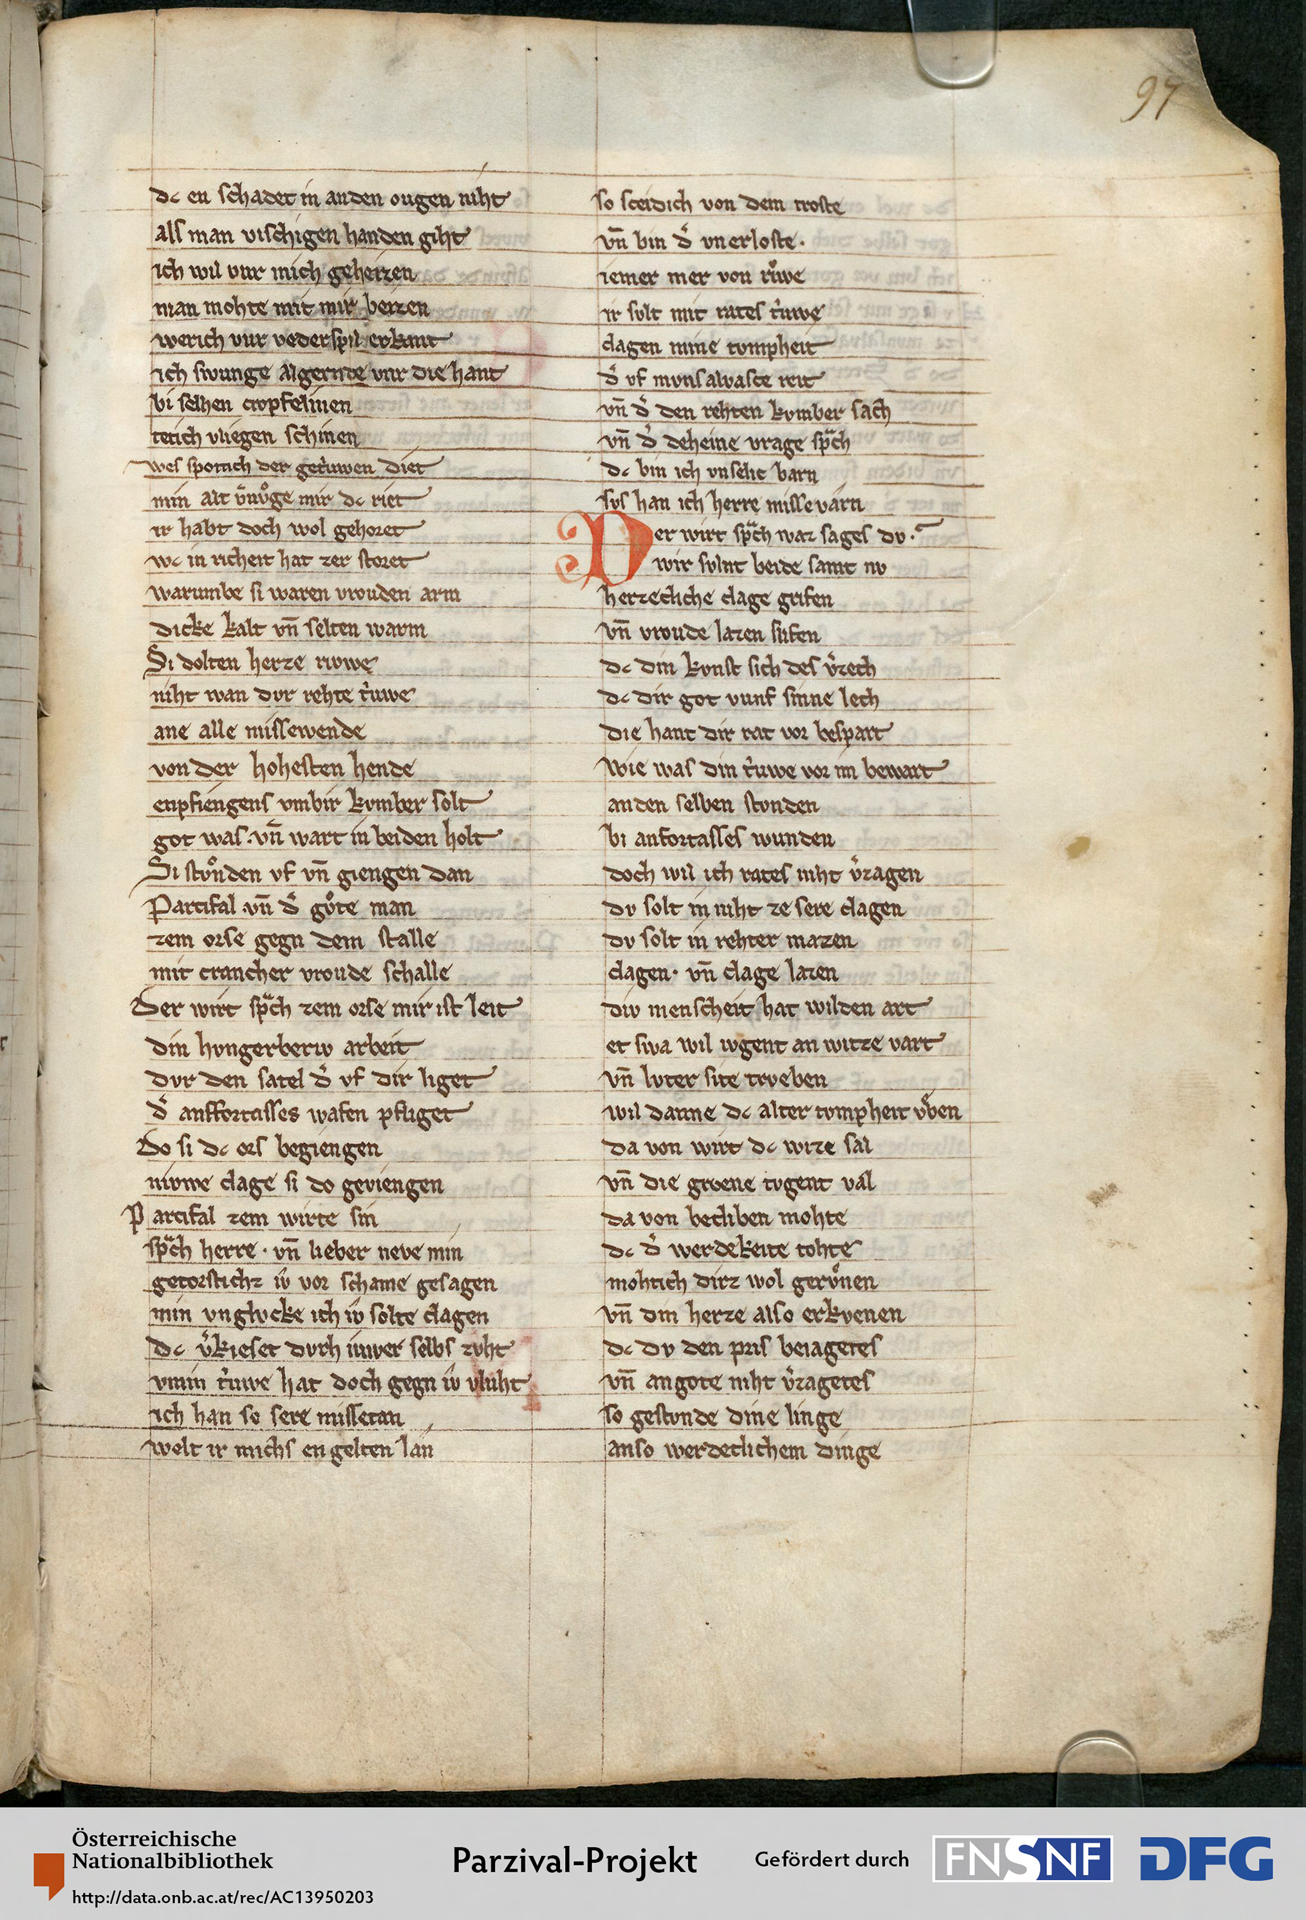 97
dc en schadet in anden ougen niht
alſ man viſchigen handen giht
ich wil vur mich geheizen
man mohte mit mir beizen
werich vur vederſpil erkant
ich ſwunge algernde vur die hant
bi ſelhen cropfelinen
tetich vliegen ſchinen
wes ſpottich der getruwen diet
min alt vnvͦge mir dc riet
ir habt doch wol gehoret
wc in richeit hat zer ſtoret
warumbe ſi waren vrouden arm
dicke kalt vn̄ ſelten warm
Si dolten herze riwwe
niht wan dvr rehte t͛uwe
ane alle miſſewende
von der hoheſten hende
enpfiengenſ vmbir kvmber ſolt
got was · vn̄ wart in beiden holt
Si ſtvͦnden vf vn̄ giengen dan
Parcifal vn̄ d͛ gvͦte man
zem orſe gegn dem ſtalle
mit crancher vroude ſchalle
Der wirt ſp̄ch zem orſe mir iſt leit
din hvngerberiv arbeit
dvr den ſatel d͛ vf dir liget
d͛ anffortaſſes wafen pfliget
Do ſi dc ors begiengen
niwwe clage ſi do geviengen
Parcifal zem wirte ſin
ſp̄ch herre · vn̄ lieber neve min
getorſtichz iv̂ vor ſchame geſagen
min vnglvcke ich iv̂ ſolte clagen
dc v͛kieſet dvrh iuwer ſelbſ zvht
vmin t͛uwe hat doch gegn iv̂ vluht
ich han ſo ſere miſſetan
welt ir michs engelten lan
ſo ſceidich von dem troſte
vn̄ bin d͛ vnerloſte ·
iemer mer von rvͦwe
ir ſvlt mit rates t͛uwe
clagen mine tvmpheit
d͛ vf mvnſalvaſce reit
vn̄ d͛ den rehten kvmber ſach
vn̄ d͛ deheine vrage ſp̄ch
dc bin ich vnſelic barn
ſvs han ich herre miſſevarn
Der wirt ſp̄ch waz ſages dv ·
wir ſvlnt beide ſamt nv
herzecliche clage grifen
vn̄ vroude lazen ſlifen
dc din kvnſt ſich des v͛zech
dc dir got vunf ſinne lech
die hant dir rat vor beſpart
wie was din t͛uwe vor im bewart
anden ſelben ſtonden
bi anfortaſſes wunden
doch wil ich rates niht v͛zagen
dv ſolt in niht ze ſere clagen
dv ſolt in rehter mazen
clagen · vn̄ clage lazen
div menſcheit hat wilden art
et ſwa wil ivgent an witze vart
vn̄ lvter ſite trveben
wil danne dc alter tvmpheit v͛ben
da von wirt dc wize ſal
vn̄ die grvene tvgent val
da von becliben mohte
dc d͛ werdekeite tohte
mohtich dirz wol gervͦnen
vn̄ din herze alſo erkvenen
dc dv den pris beiagetes
vn̄ angote niht v͛zagetes
ſo geſtvnde dine linge
anſo werdeclichem dinge
Österreichische
Nationalbibliothek
http://data.onb.ac.at/rec/AC13950203
Parzival-Projekt
Gefördert durch
FNSNF
DFG